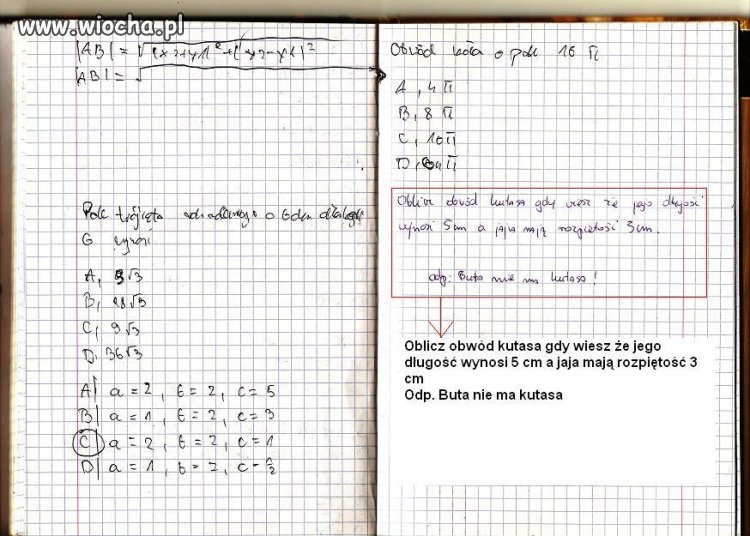 www.wiocha.pl
|AB| = √(x2+y1)²+(x2-y1)²
|AB| = √
Pole trójkąta o boku długości
6 wynosi
A, 3√3
B, 18√3
C, 9√3
D. 36√3
A| a = 2, b = 2, c = 5
B| a = 1, b = 2, c = 3
C| a = 2, b = 2, c = 1
D| a = 1, b = 2, c =
Obwód koła o polu 16 π
A, 4π
B, 8π
C, 16π
D, 64π
Oblicz obwód kutasa gdy wiesz że jego długość
wynosi 5 cm a jaja mają rozpiętość 3 cm.
odp: Buta nie ma kutasa!
Oblicz obwód kutasa gdy wiesz że jego
długość wynosi 5 cm a jaja mają rozpiętość 3
cm
Odp. Buta nie ma kutasa